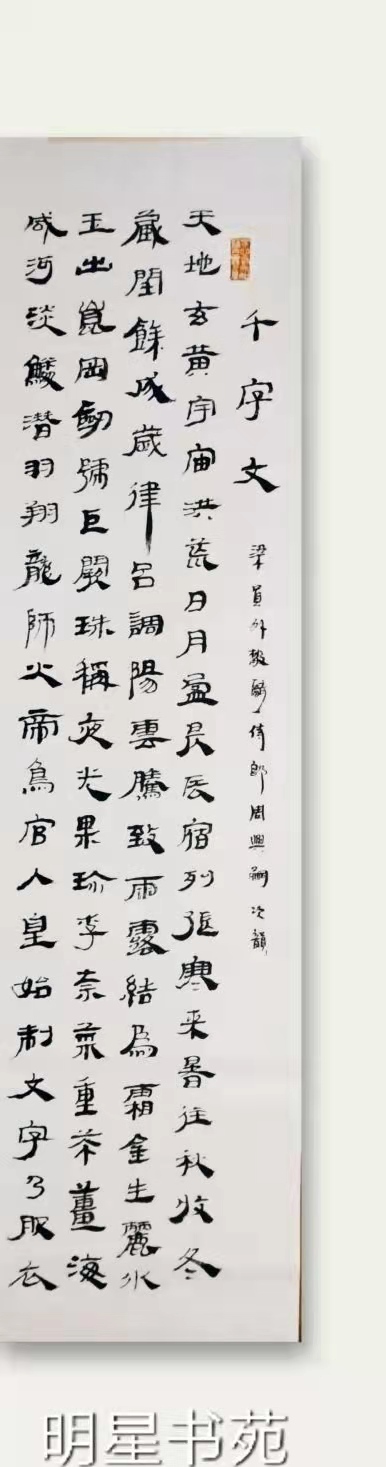 千字文
梁員外散騎侍郎周興嗣次韻
天地玄黄宇宙洪荒日月盈昃辰宿列張寒来暑往秋收冬
藏閏餘成歲律吕調陽雲騰致雨露結爲霜金生麗水
玉出崑岡劒號巨闕珠稱夜光果珍李柰菜重芥薑海
咸河淡鱗潜羽翔龍師火帝鳥官人皇始制文字乃服衣
明星书苑